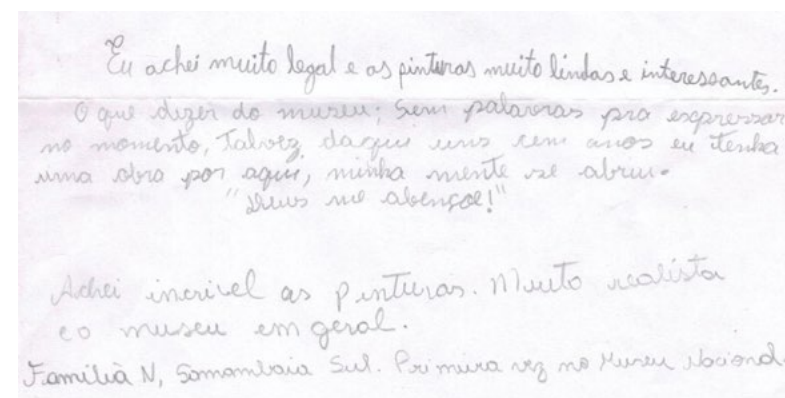 Eu achei muito legal e as pinturas muito lindas e interessantes.
O que dizer do museu; Sem palavras pra expressar
no momento, Talvez daqui uns cem anos eu tenha
uma obra por aqui, minha mente se abriu.
"Deus me abençoe!"
Achei incrivel as pinturas. Muito realista
e o museu em geral.
Familia N, Samambaia Sul. Primeira vez no Museu Nacional.